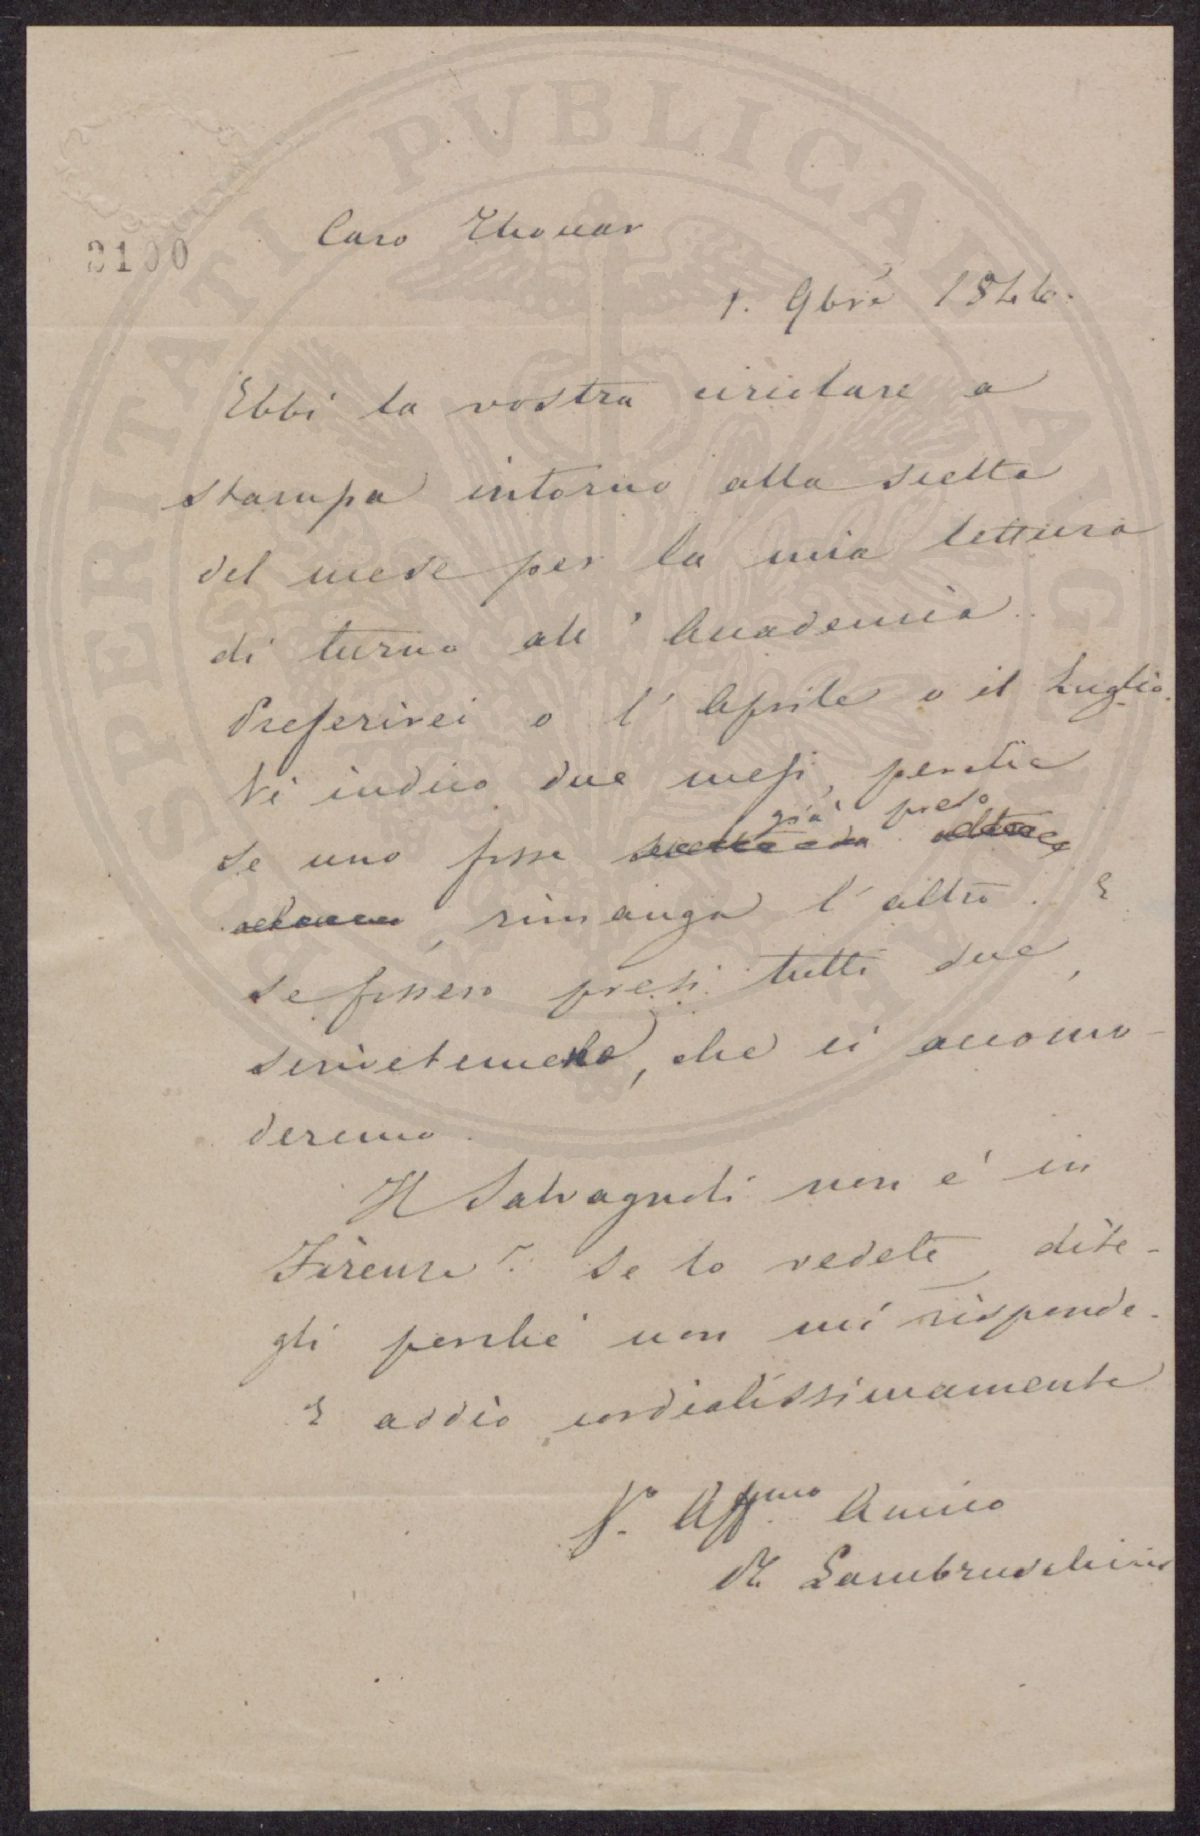 PROSPERITATI PVBLICAE AVGENDAE
3100
Caro Thouar
1. 9bre 1846.
Ebbi la vostra circolare a
stampa intorno alla scelta
del mese per la mia lettura
di turno all' Accademia.
Preferirei o l' Aprile o il Luglio.
Vi indico due mesi, perchè
già preso
se uno fosse
, rimanga l' altro. E
se fossero presi tutti due,
scrivetemelo, che ci accomo-
deremo.
Il Salvagnoli non è in
Firenze? Se lo vedete, dite-
gli perchè non mi risponde.
E addio cordialissimamente
Vo. Affmo Amico
R Lambruschini